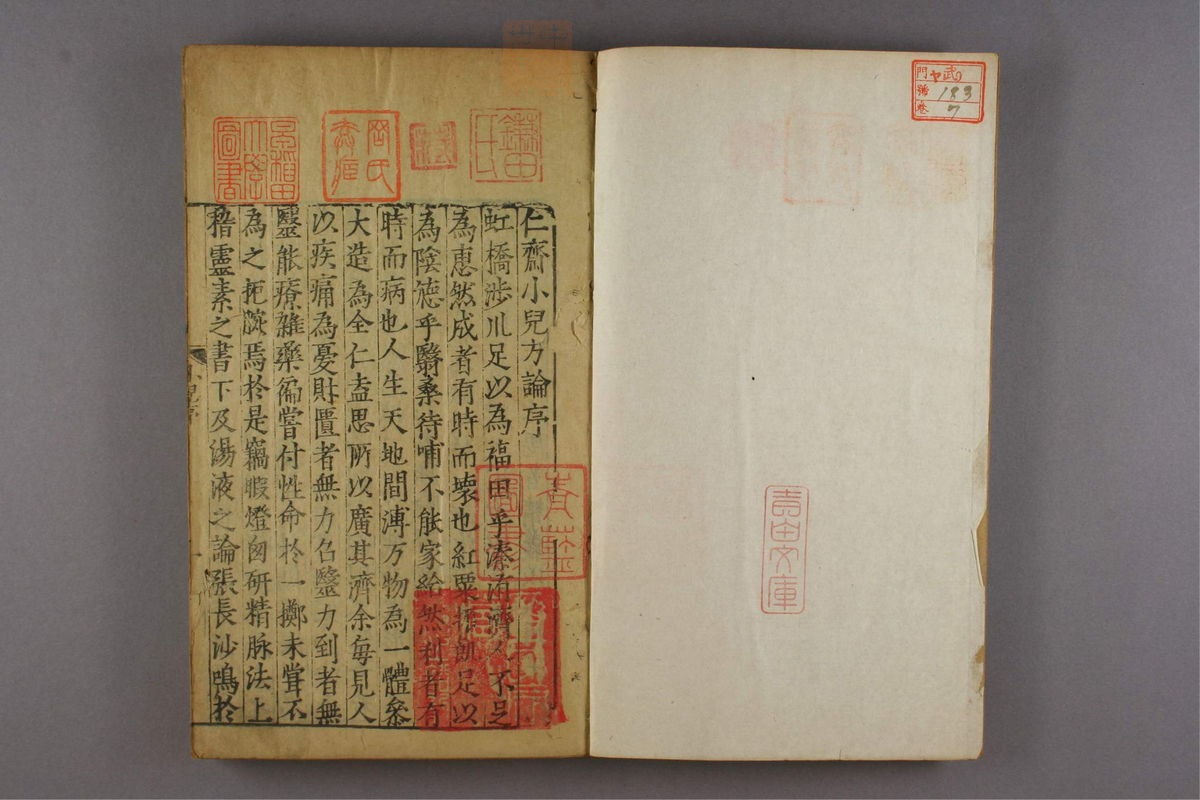 門 ヤ武
號 183
卷 7
青田文庫
仁齋小兒方論序
虹橋涉川足以為福田乎溱洧濟人不足
為惠然成者有時而壞也紅粟振飢足以
為陰德乎翳桑待哺不能家給然利者有
時而病也人生天地間溥万物為一體叅
大造為全仁盍思所以廣其濟余每見人
以疾痛為憂財匱者無力召毉力到者無
毉能療雜藥徧嘗付性命於一擲未甞不
為之扼腕焉於是竊暇燈囱研精脉法上
稽靈素之書下及湯液之論張長沙鳴於
小兒序
鎌田氏
早稲田大學圖書